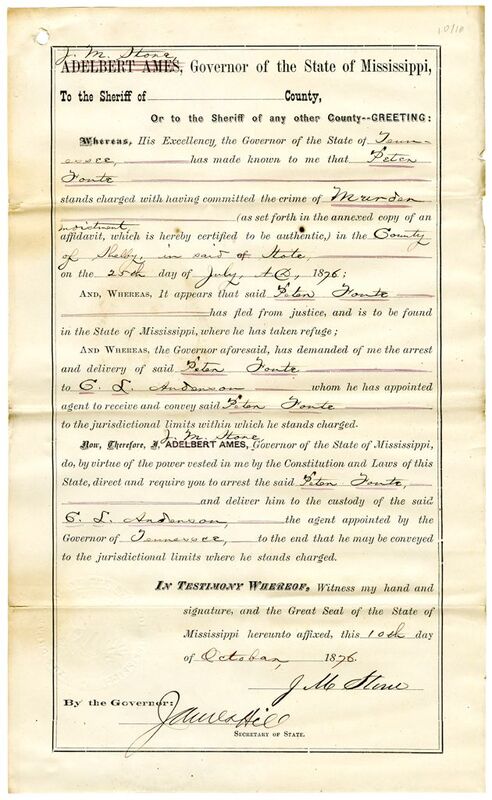 10/10
J. M. Stone
ADELBERT AMES, Governor of the State of Mississippi,
To the Sheriff of County,
Or to the Sheriff of any other County--GREETING:
Whereas, His Excellency, the Governor of the State of Tenn-
essee, has made known to me that Peter
Fonte
stands charged with having committed the crime of Murder
(as set forth in the annexed copy of an
indictment,
affidavit, which is hereby certified to be authentic,) in the County
of Shelby, in said of State,
on the 25th day of July, A.D., 1876;
AND, WHEREAS, It appears that said Peter Fonte
has fled from justice, and is to be found
in the State of Mississippi, where he has taken refuge;
AND WHEREAS, the Governor aforesaid, has demanded of me the arrest
and delivery of said Peter Fonte
to C. L. Anderson whom he has appointed
agent to receive and convey said Peter Fonte
to the jurisdictional limits within which he stands charged.
J. M. Stone
Now, Therefore, I, ADELBERT AMES, Governor of the State of Mississippi,
do, by virtue of the power vested in me by the Constitution and Laws of this
State, direct and require you to arrest the said Peter Fonte,
and deliver him to the custody of the said
C. L. Anderson, the agent appointed by the
Governor of Tennessee, to the end that he may be conveyed
to the jurisdictional limits where he stands charged.
IN TESTIMONY WHEREOF, Witness my hand and
signature, and the Great Seal of the State of
Mississippi hereunto affixed, this 10th day
of October, 1876.
J M Stone
By the Governor:
James Hill
SECRETARY OF STATE.